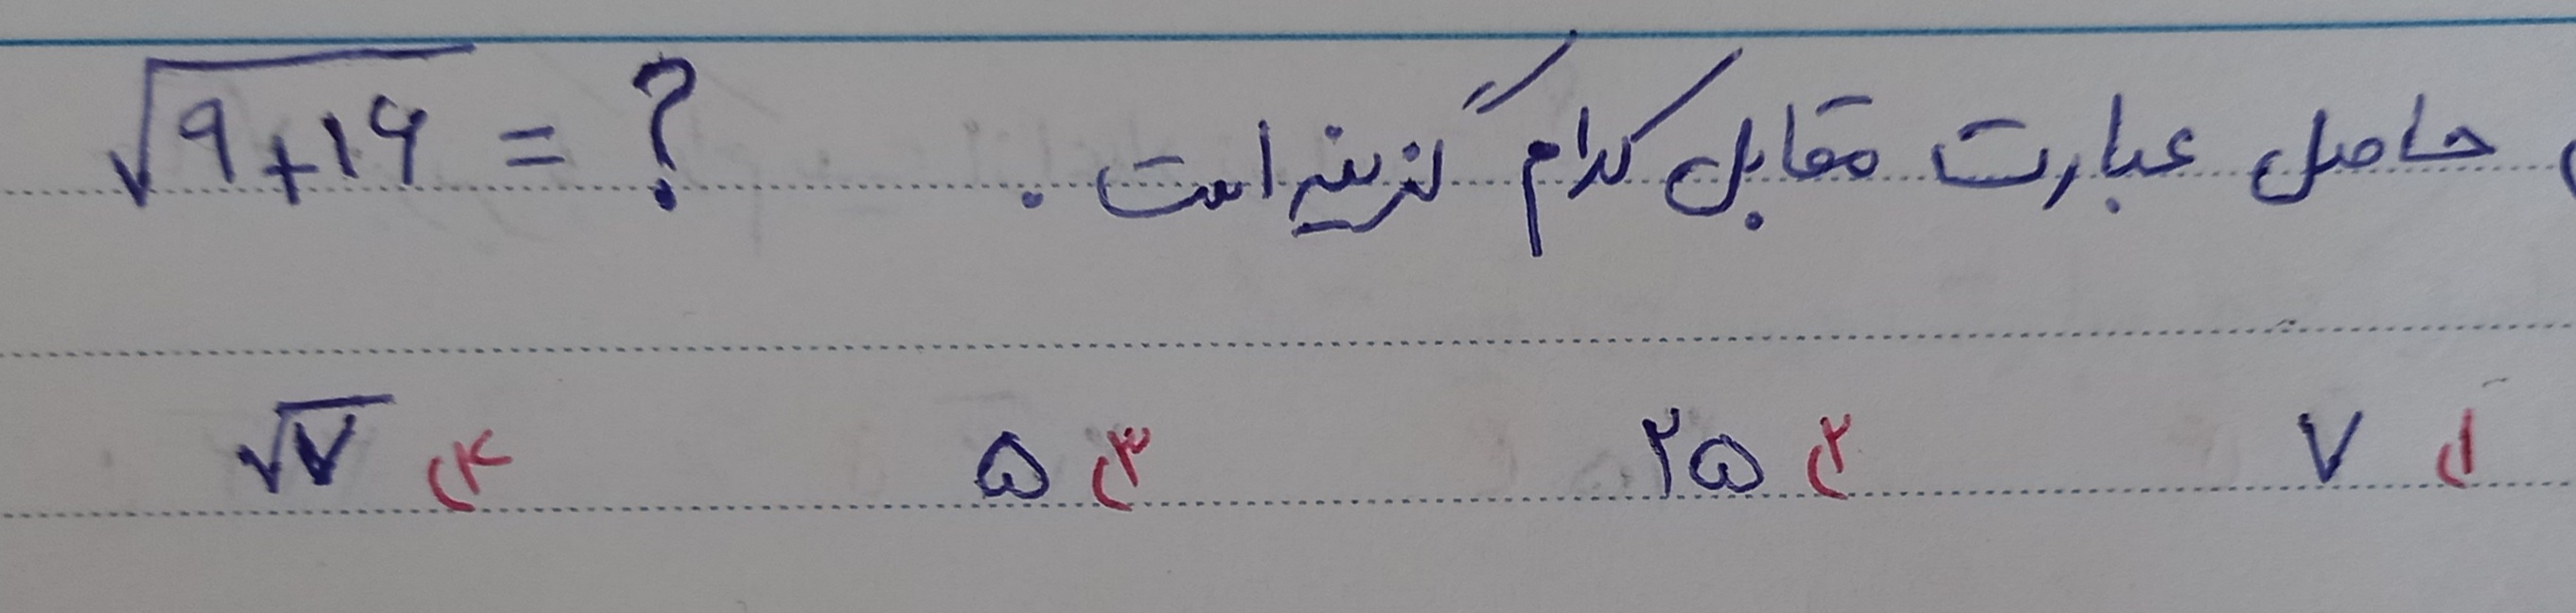 حاصل عبارت مقابل کدام گزینه است . √۹+۱۶ = ?
۱) ۷ ۲) ۲۵ ۳) ۵ ۴) √۷